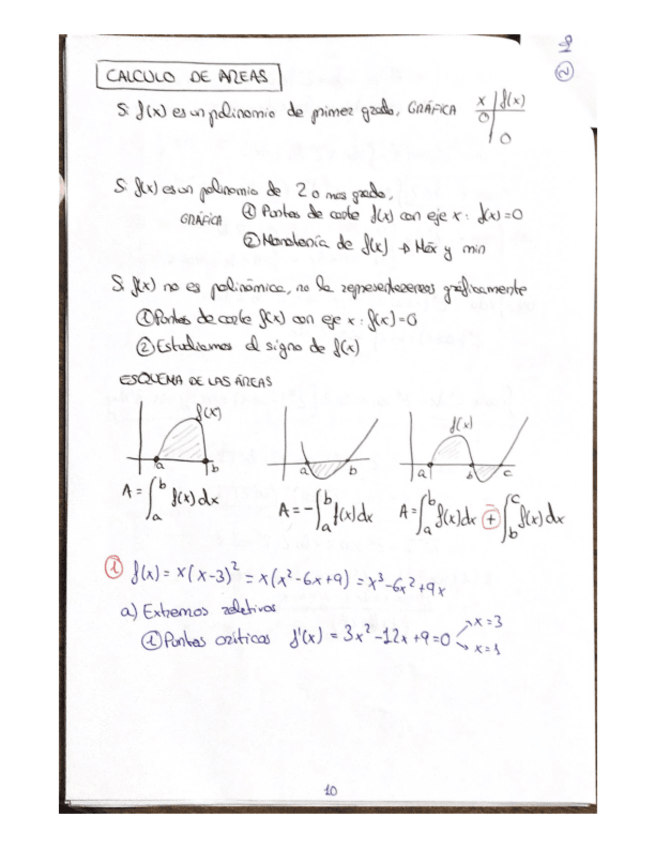 CALCULO DE AREAS
Si f(x) es un polinomio de primer grado, GRÁFICA
x | f(x)
0
0
Si f(x) es un polinomio de 2 o mas grado,
GRÁFICA ① Puntos de corte f(x) con eje x: f(x)=0
② Monotonía de f(x) → Máx y min
Si f(x) no es polinómica, no la representaremos gráficamente
① Puntos de corte f(x) con eje x: f(x)=0
② Estudiamos el signo de f(x)
ESQUEMA DE LAS ÁREAS
f(x) a b
a b
f(x) a b c
A=∫_a^b f(x)dx
A=-∫_a^b f(x)dx
A=∫_a^b f(x)dx ∓ ∫_b^c f(x)dx
① f(x)= x(x-3)² = x(x²-6x+9) = x³-6x²+9x
a) Extremos relativos
① Puntos críticos f'(x) = 3x²-12x+9=0
x=3
x=1
10